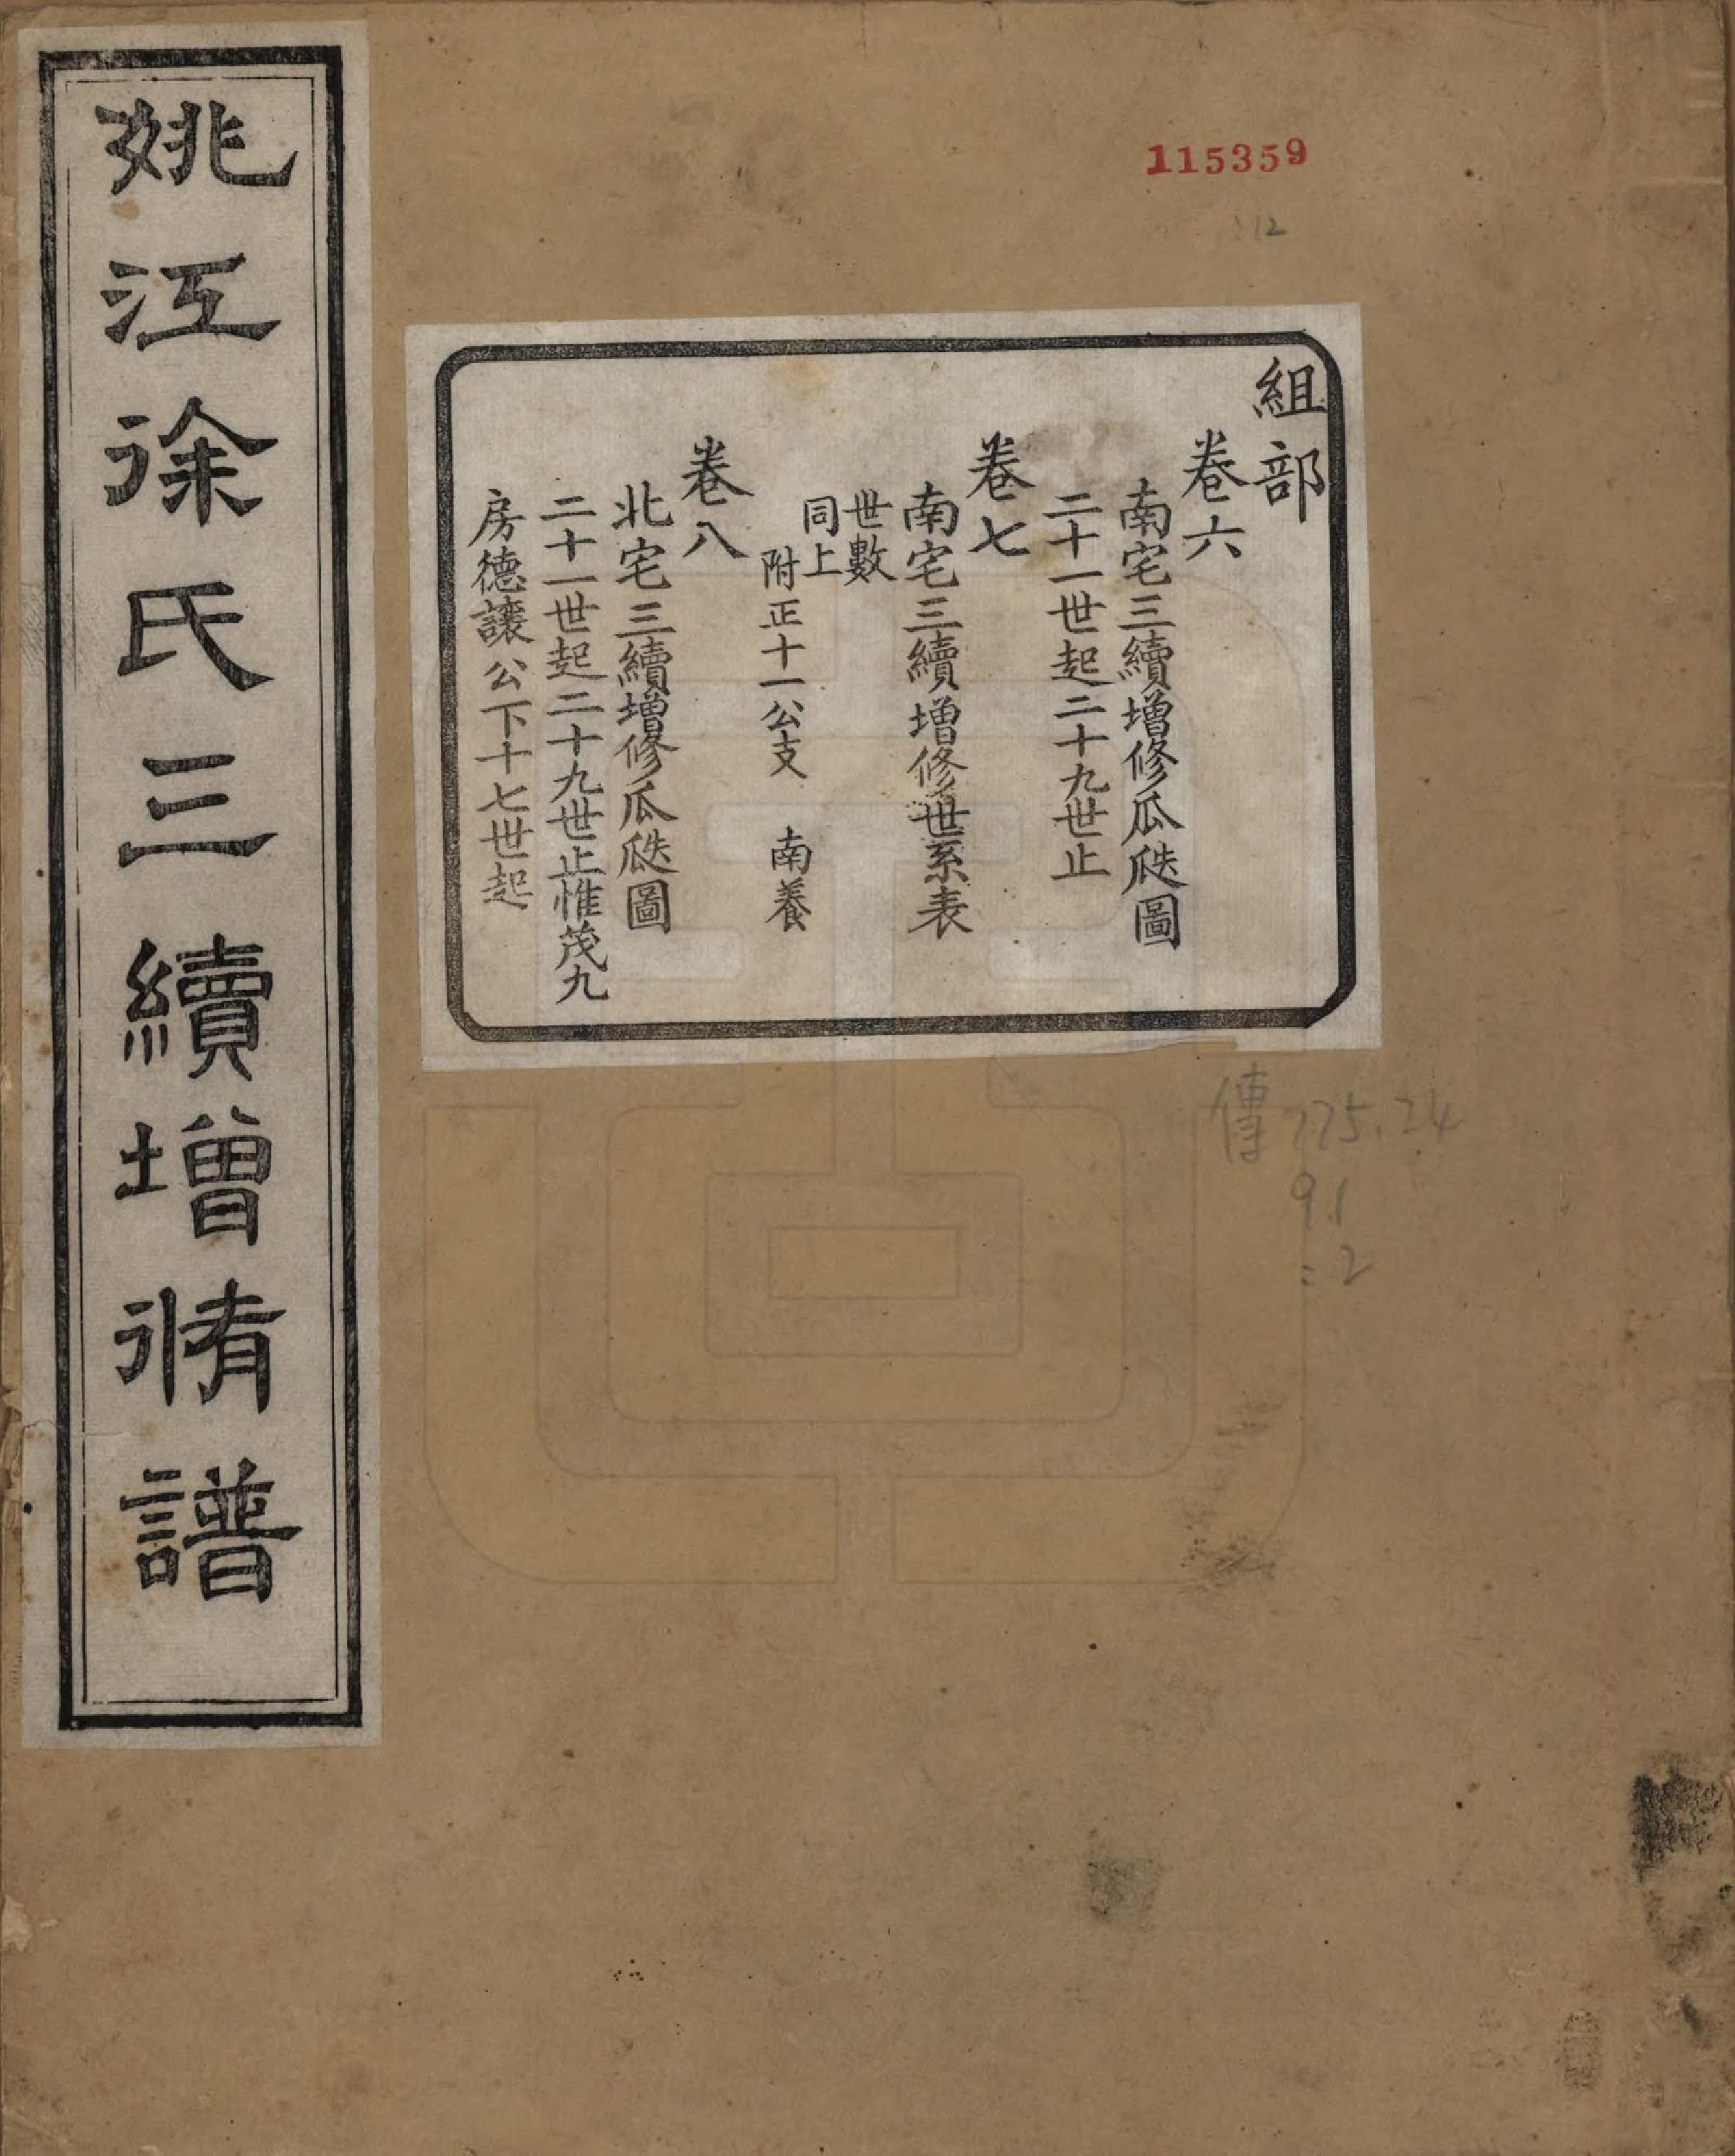 115359
112
組部
卷六
南宅三續增修瓜瓞圖
二十一世起二十九世止
卷七
南宅三續增修世系表
世數
同上
附正十一公支 南養
卷八
北宅三續增修瓜瓞圖
二十一世起二十九世止惟茂九
房德讓公下十七世起
姚江徐氏三續增脩譜
傳 775.24
91
:2